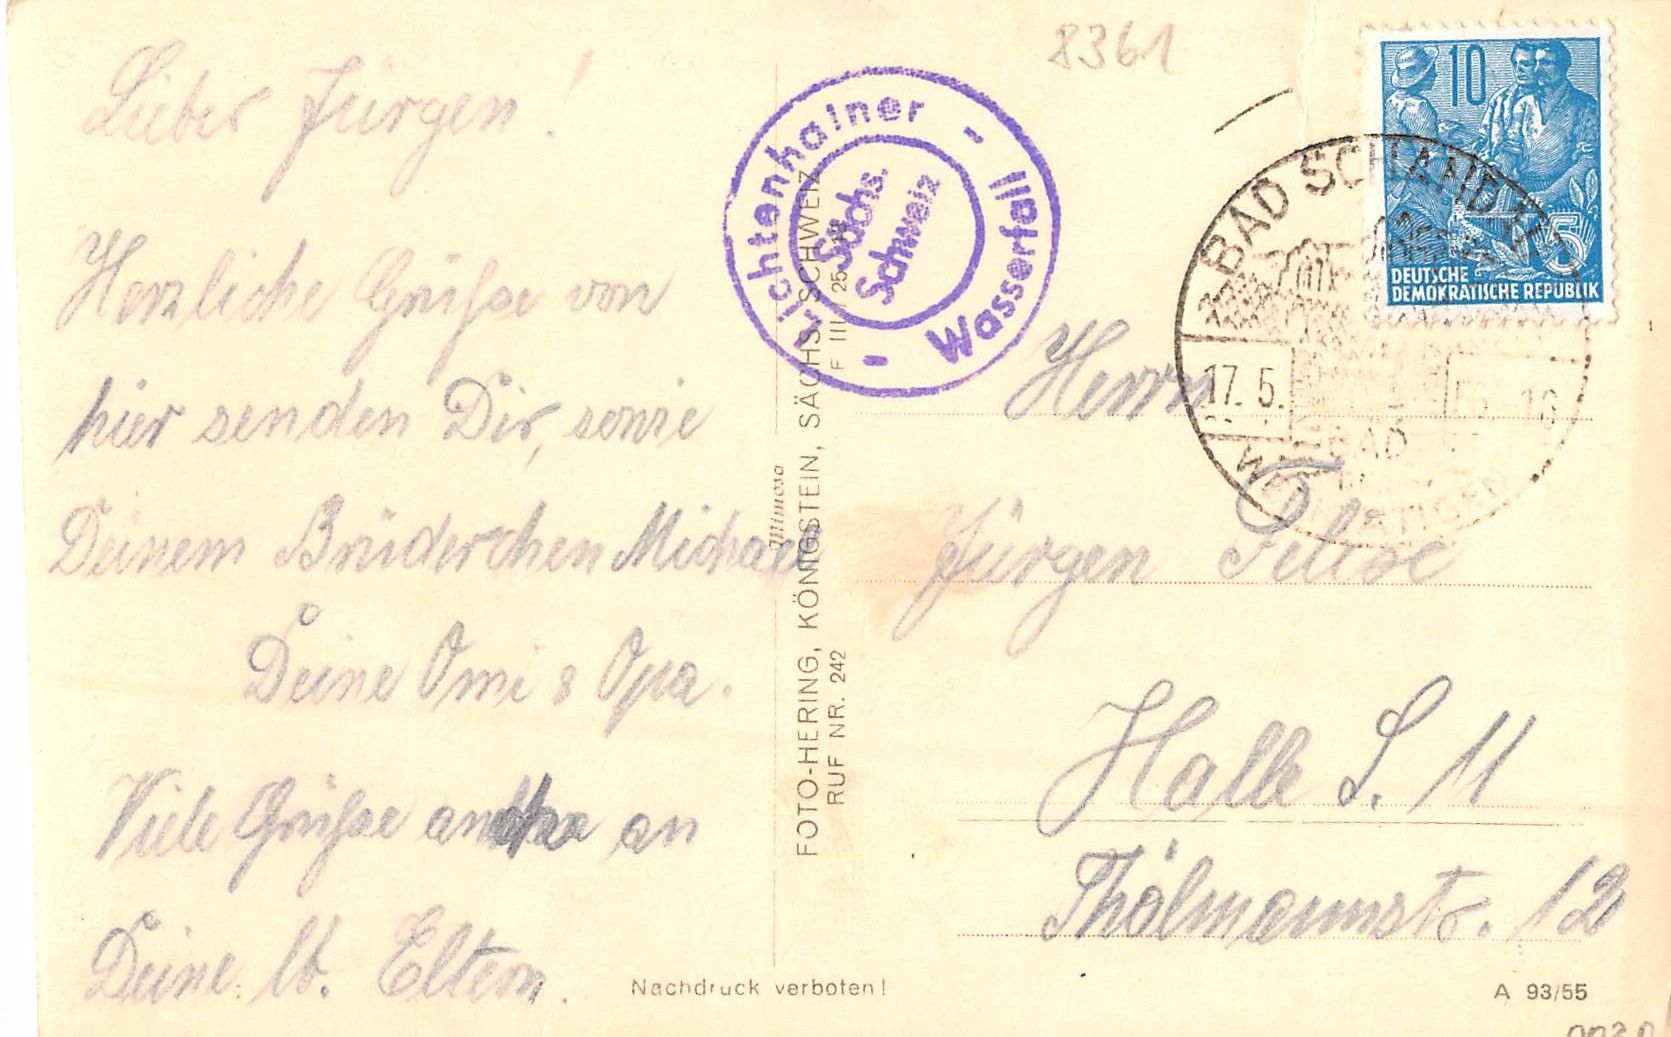 8361
Lieber Jürgen!
Herzliche Grüße von
hier senden Dir, sowie
Deinem Brüderchen Michael
Deine Omi & Opa.
Viele Grüße an
Deine lb. Eltern.
Lichtenhainer - Wasserfall -
Sächs.
Schweiz
Mimosa
FOTO-HERING, KÖNIGSTEIN, SÄCHS. SCHWEIZ
RUF NR. 242
F III 25
10
5
DEUTSCHE
DEMOKRATISCHE REPUBLIK
BAD SCHANDAU
17. 5. 16
BAD
Herrn
Jürgen
Halle S. 11
Thälmannstr. 12
Nachdruck verboten!
A 93/55